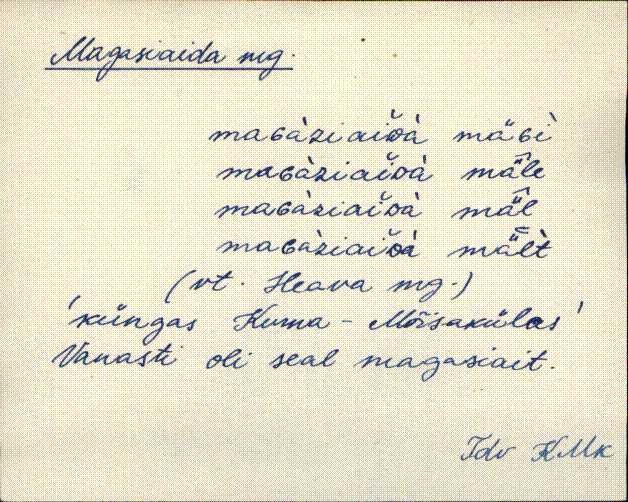 Magasiaida mg.
maɢàziaiᴅ̆à mäɢì
maɢàziaiᴅ̆à mä̂le
maɢàziaiᴅ̆à mä̂l
maɢàziaiᴅ̆à mä̂lt
(vt. Heava mg.)
'küngas Kurna-Mõisakülas'
Vanasti oli seal magasiait.
Tdv KMK